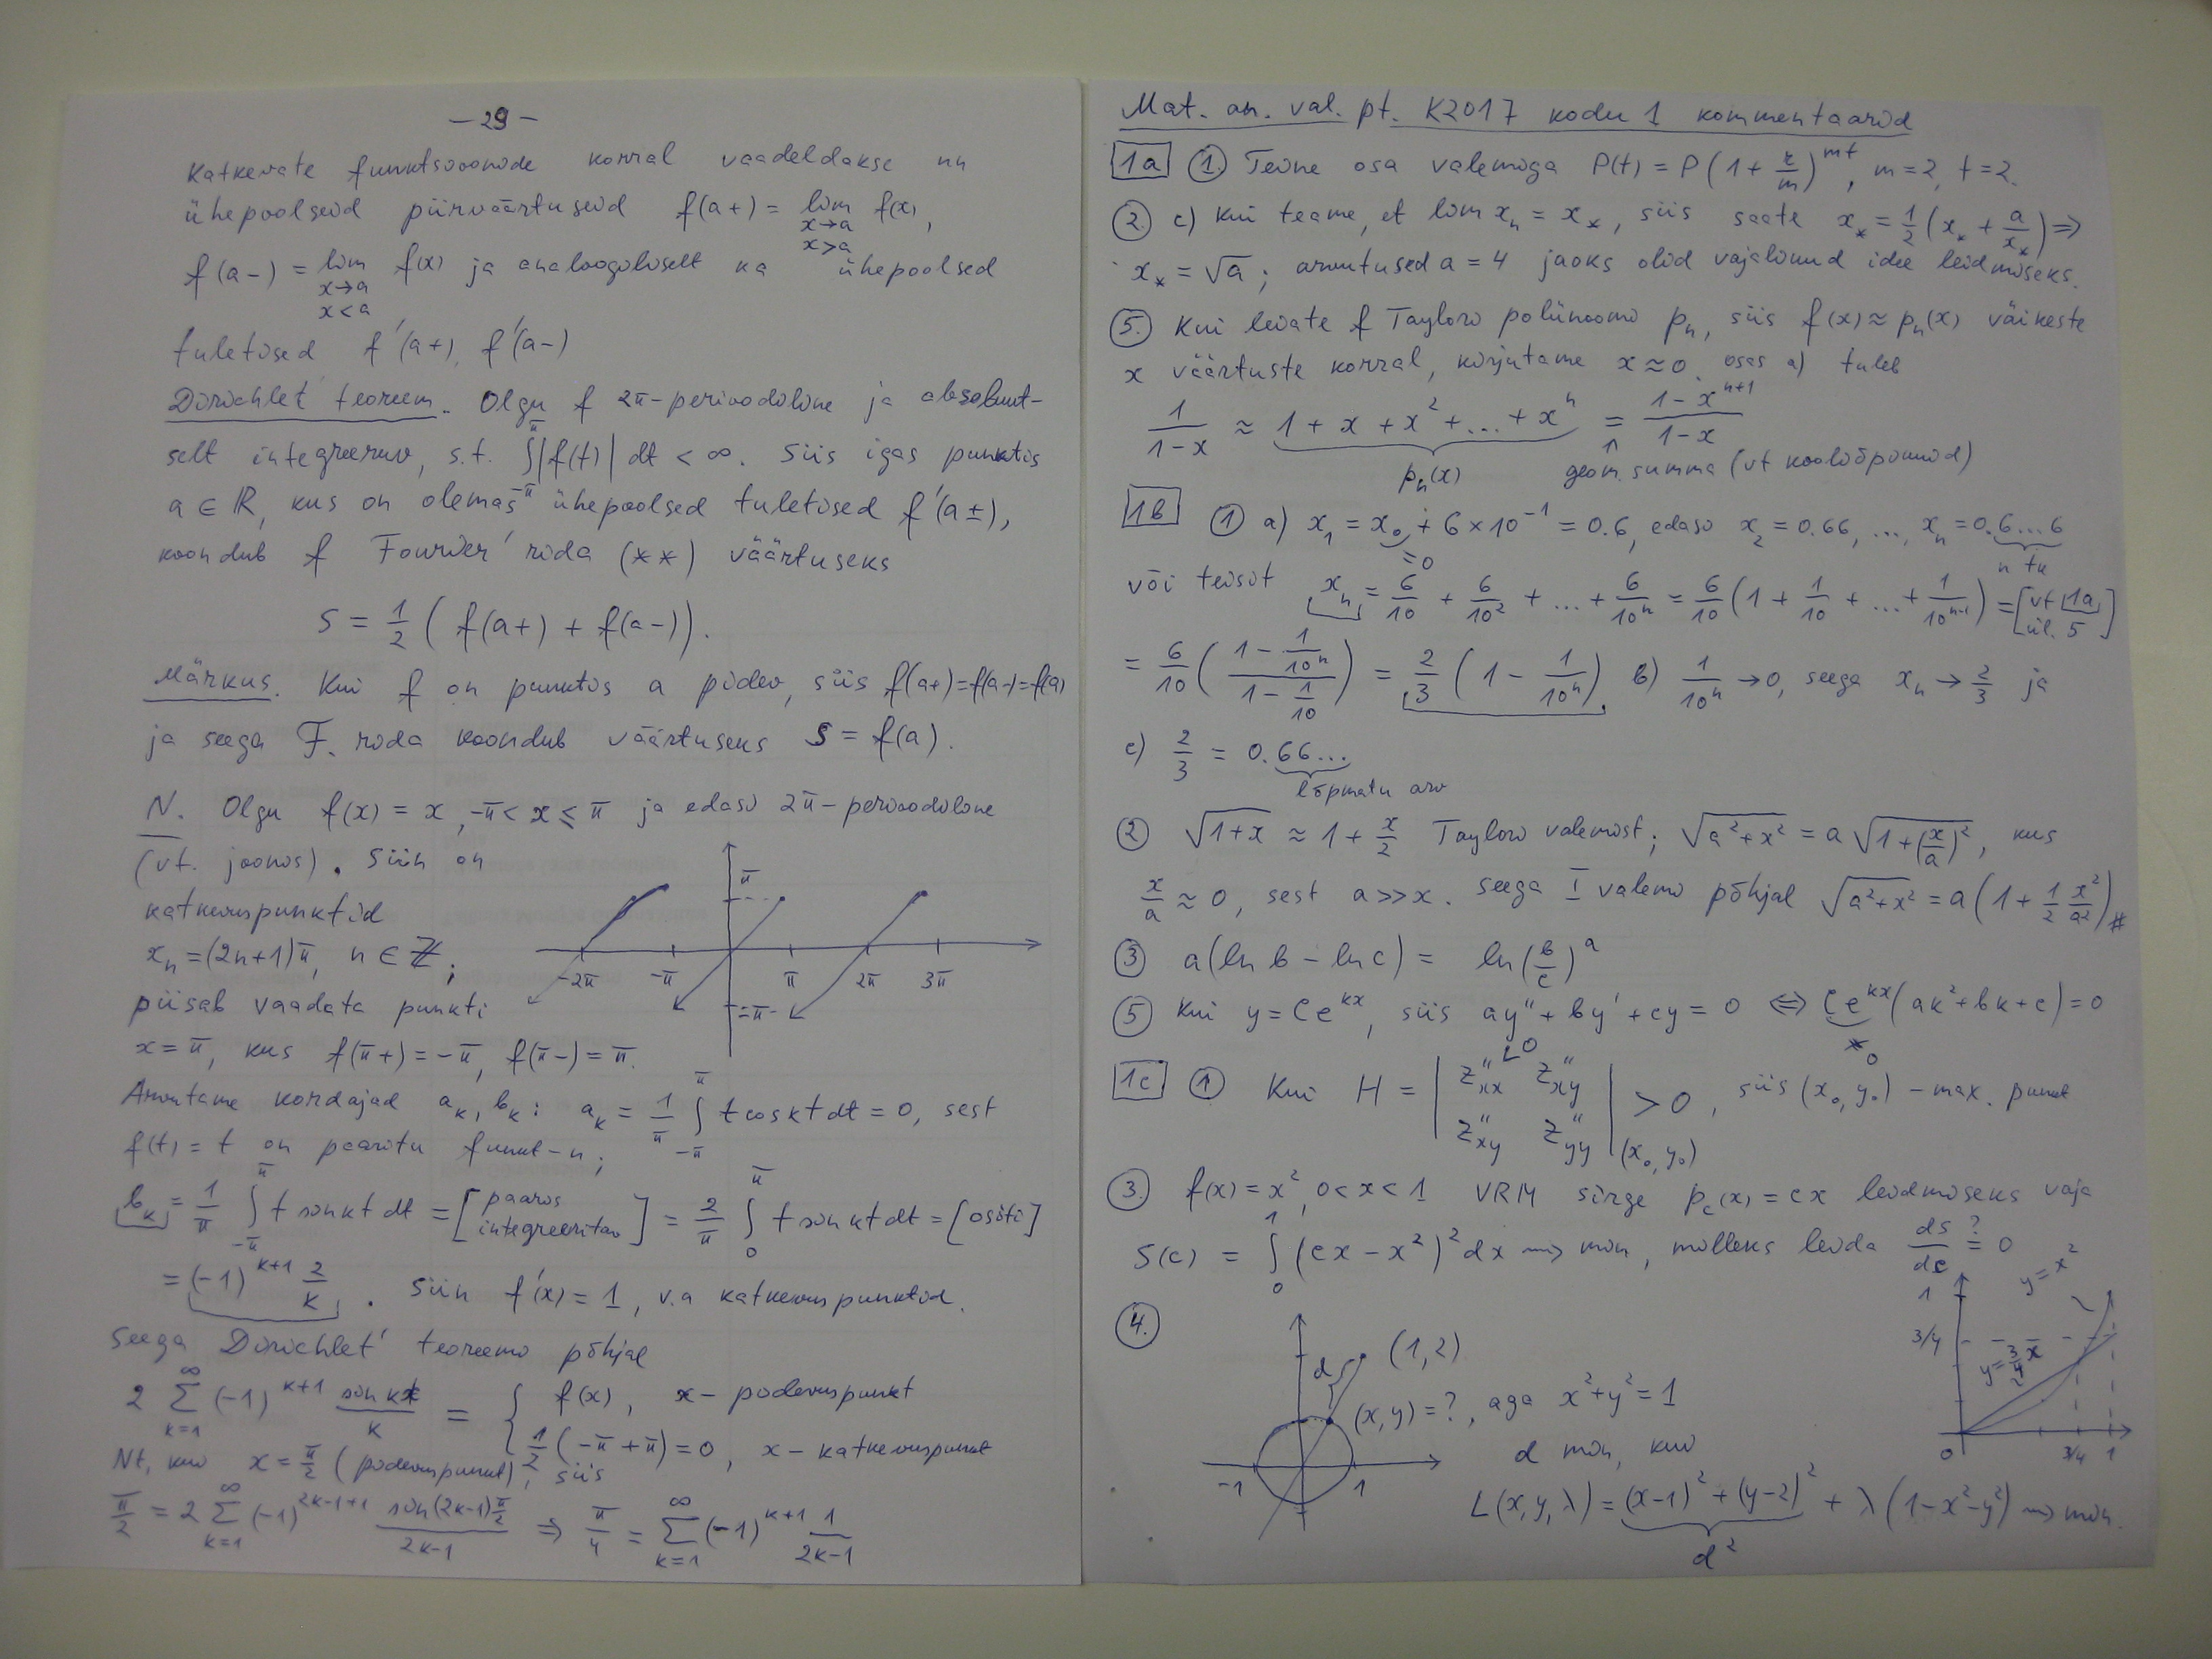 — 29 —
Katkevate funktsioonide korral vaadeldakse nn
ühepoolseid piirväärtuseid f(a+) = lim f(x),
x→a
x>a
f(a-) = lim f(x) ja analoogiliselt ka ühepoolsed
x→a
x<a
tuletised f'(a+), f'(a-)
Dirichlet' teoreem. Olgu f 2π-perioodiline ja absoluut-
selt integreeruv, s.t. ∫_{-π}^{π} |f(t)| dt < ∞. Siis igas punktis
a ∈ ℝ, kus on olemas ühepoolsed tuletised f'(a±),
koondub f Fourier' rida (**) väärtuseks
S = 1/2 ( f(a+) + f(a-) ).
Märkus. Kui f on punktis a pidev, siis f(a+)=f(a-)=f(a)
ja seega F. rida koondub väärtuseks S = f(a).
N. Olgu f(x) = x, -π < x ≤ π ja edasi 2π-perioodiline
(vt. joonis). Siin on
katkevuspunktid
x_n = (2n+1)π, n ∈ ℤ;
piisab vaadata punkti
π
-2π -π π 2π 3π
-π
x = π, kus f(π+) = -π, f(π-) = π.
Arvutame kordajad a_k, b_k: a_k = 1/π ∫_{-π}^{π} t cos kt dt = 0, sest
f(t) = t on paaritu funkt-n;
b_k = 1/π ∫_{-π}^{π} t sin kt dt = [paaris integreeritav] = 2/π ∫_0^π t sin kt dt = [ositi]
= (-1)^{k+1} 2/k. Siin f'(x) = 1, v.a katkevuspunktid.
Seega Dirichlet' teoreemi põhjal
2 ∑_{k=1}^{∞} (-1)^{k+1} sin kx / k = { f(x), x - pidevuspunkt
1/2 (-π + π) = 0, x - katkevuspunkt
Nt, kui x = π/2 (pidevuspunkt), siis
π/2 = 2 ∑_{k=1}^{∞} (-1)^{2k-1+1} sin(2k-1)π/2 / 2k-1 ⇒ π/4 = ∑_{k=1}^{∞} (-1)^{k+1} 1/2k-1
Mat. an. val. pt. K2017 kodu 1 kommentaarid
1a ① Teine osa valemiga P(t) = P(1 + r/m)^{mt}, m=2, t=2.
② c) Kui teame, et lim x_n = x_*, siis saate x_* = 1/2 (x_* + a/x_*) ⇒
x_* = √a; arvutused a = 4 jaoks olid vajalikud idee leidmiseks.
⑤ Kui leiate f Taylori polünoomi p_n, siis f(x) ≈ p_n(x) väikeste
x väärtuste korral, kirjutame x ≈ 0. osas a) tuleb
1/(1-x) ≈ 1 + x + x² + ... + xⁿ = (1 - x^{n+1})/(1-x)
p_n(x) ↑ geom. summa (vt kooliõpikuid)
1b ① a) x_1 = x_0 + 6×10^{-1} = 0.6, edasi x_2 = 0.66, ..., x_n = 0.6...6
=0 n tk
või teisiti x_n = 6/10 + 6/10² + ... + 6/10ⁿ = 6/10 (1 + 1/10 + ... + 1/10^{n-1}) = [vt 1a ül. 5]
= 6/10 ( (1 - 1/10ⁿ)/(1 - 1/10) ) = 2/3 (1 - 1/10ⁿ). b) 1/10ⁿ → 0, seega x_n → 2/3 ja
c) 2/3 = 0.66...
lõpmatu arv
② √(1+x) ≈ 1 + x/2 Taylori valemist; √(a²+x²) = a √(1+(x/a)²), kus
x/a ≈ 0, sest a >> x. Seega I valemi põhjal √(a²+x²) = a(1 + 1/2 x²/a²) #
③ a(ln b - ln c) = ln(b/c)^a
⑤ Kui y = Ce^{kx}, siis ay'' + by' + cy = 0 ⇔ Ce^{kx}(ak²+bk+c) = 0
≠0
1c ① Kui H = | z''_xx z''_xy | > 0, siis (x_0, y_0) - max. punkt
<0
| z''_xy z''_yy |_(x_0, y_0)
③ f(x) = x², 0 < x < 1 VRM sirge p_c(x) = cx leidmiseks vaja
S(c) = ∫_0^1 (cx - x²)² dx → min, milleks leida dS/dc =? 0
④
d (1,2)
(x,y) = ?, aga x²+y² = 1
-1 1
d min, kui
L(x,y,λ) = (x-1)² + (y-2)² + λ(1-x²-y²) → min.
d²
y = x²
1
3/4
y = 3/4 x
0 3/4 1